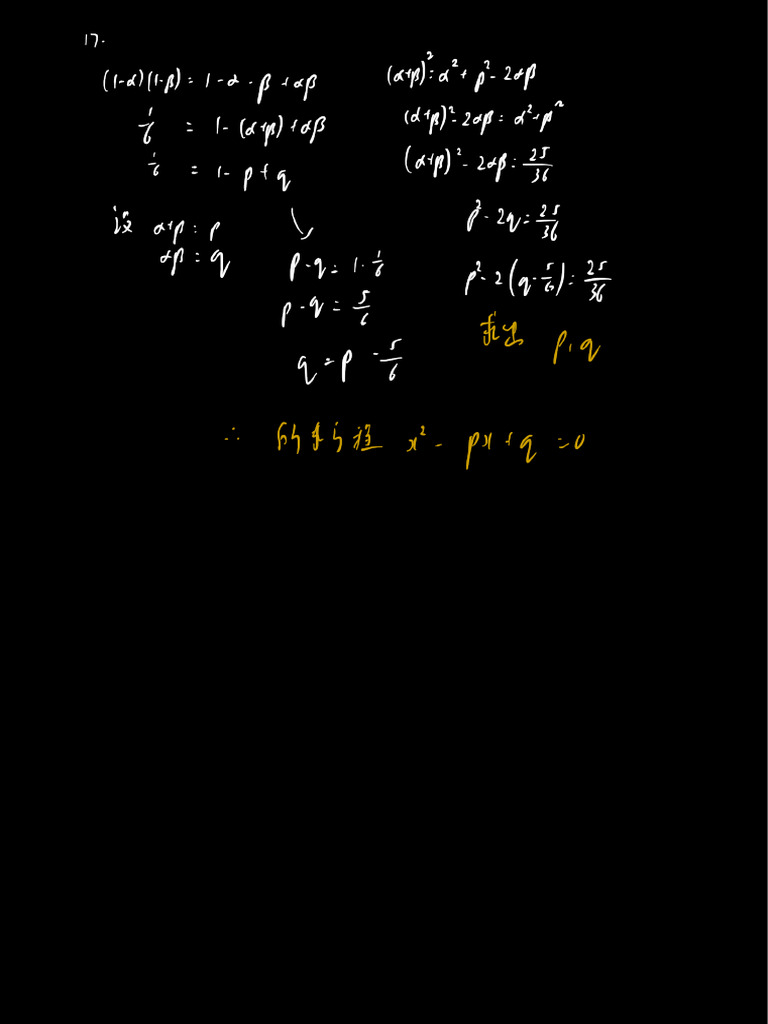 17.
(1-α)(1-β) = 1-α-β+αβ
1/6 = 1-(α+β)+αβ
1/6 = 1-p+q
设 α+β = p
αβ = q
p-q = 1-1/6
p-q = 5/6
q = p-5/6
(α+β)² = α²+β²-2αβ
(α+β)²-2αβ = α²+β²
(α+β)²-2αβ = 25/36
p²-2q = 25/36
p²-2(q-5/6) = 25/36
求出 p, q
∴ 所求方程 x²-px+q=0